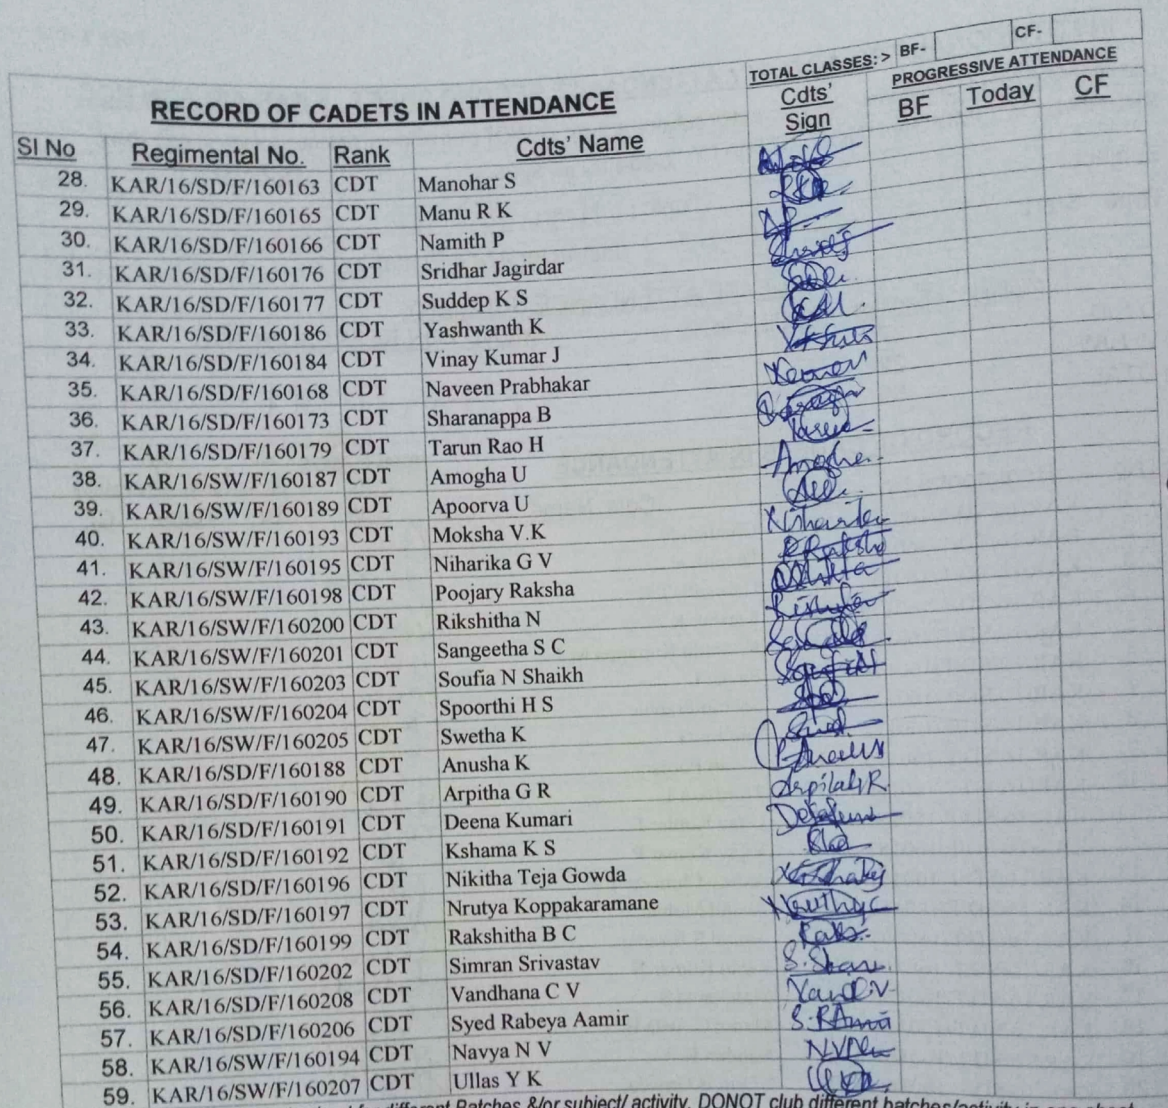 TOTAL CLASSES: > BF- CF-
RECORD OF CADETS IN ATTENDANCE Cdts' Sign PROGRESSIVE ATTENDANCE
Sl No Regimental No. Rank Cdts' Name BF Today CF
28. KAR/16/SD/F/160163 CDT Manohar S
29. KAR/16/SD/F/160165 CDT Manu R K
30. KAR/16/SD/F/160166 CDT Namith P
31. KAR/16/SD/F/160176 CDT Sridhar Jagirdar
32. KAR/16/SD/F/160177 CDT Suddep K S
33. KAR/16/SD/F/160186 CDT Yashwanth K
34. KAR/16/SD/F/160184 CDT Vinay Kumar J
35. KAR/16/SD/F/160168 CDT Naveen Prabhakar
36. KAR/16/SD/F/160173 CDT Sharanappa B
37. KAR/16/SD/F/160179 CDT Tarun Rao H
38. KAR/16/SW/F/160187 CDT Amogha U Amogha.
39. KAR/16/SW/F/160189 CDT Apoorva U
40. KAR/16/SW/F/160193 CDT Moksha V.K
41. KAR/16/SW/F/160195 CDT Niharika G V
42. KAR/16/SW/F/160198 CDT Poojary Raksha
43. KAR/16/SW/F/160200 CDT Rikshitha N
44. KAR/16/SW/F/160201 CDT Sangeetha S C
45. KAR/16/SW/F/160203 CDT Soufia N Shaikh
46. KAR/16/SW/F/160204 CDT Spoorthi H S
47. KAR/16/SW/F/160205 CDT Swetha K
48. KAR/16/SD/F/160188 CDT Anusha K
49. KAR/16/SD/F/160190 CDT Arpitha G R
50. KAR/16/SD/F/160191 CDT Deena Kumari
51. KAR/16/SD/F/160192 CDT Kshama K S
52. KAR/16/SD/F/160196 CDT Nikitha Teja Gowda
53. KAR/16/SD/F/160197 CDT Nrutya Koppakaramane
54. KAR/16/SD/F/160199 CDT Rakshitha B C
55. KAR/16/SD/F/160202 CDT Simran Srivastav
56. KAR/16/SD/F/160208 CDT Vandhana C V
57. KAR/16/SD/F/160206 CDT Syed Rabeya Aamir
58. KAR/16/SW/F/160194 CDT Navya N V
59. KAR/16/SW/F/160207 CDT Ullas Y K
different Batches &/or subject/ activity. DONOT club different batches/activity